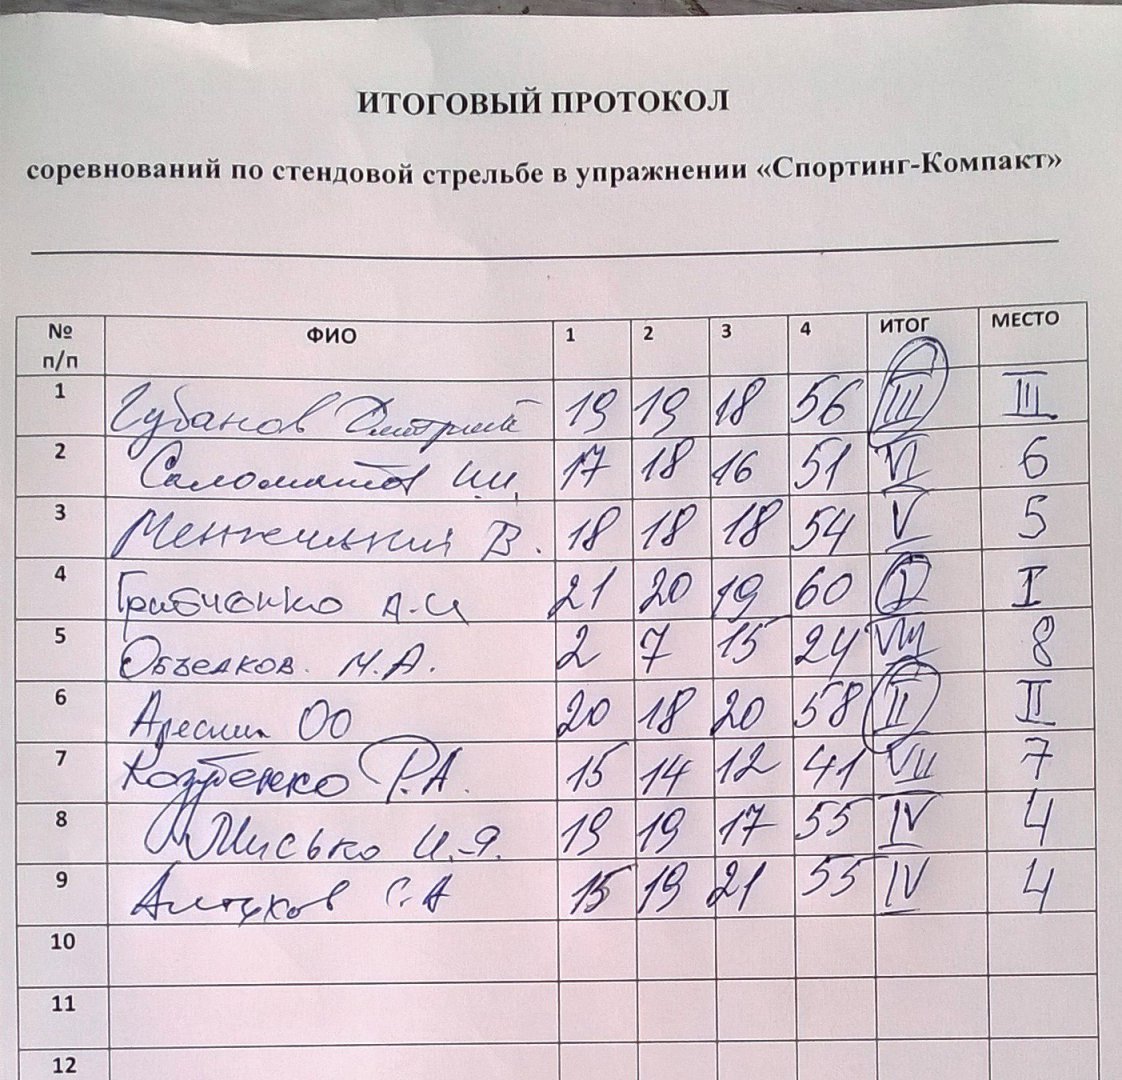 ИТОГОВЫЙ ПРОТОКОЛ
соревнований по стендовой стрельбе в упражнении «Спортинг-Компакт»
№ п/п ФИО 1 2 3 4 ИТОГ МЕСТО
1 Губанов Дмитрий 19 19 18 56 III III
2 Саломатов И.И. 17 18 16 51 VI 6
3 В. 18 18 18 54 V 5
4 Грабченко А.И 21 20 19 60 I I
5 Объедков. М.А. 2 7 15 24 VIII 8
6 ОО 20 18 20 58 II II
7 Р.А. 15 14 12 41 VII 7
8 И.Я. 19 19 17 55 IV 4
9 С.А 15 19 21 55 IV 4
10
11
12